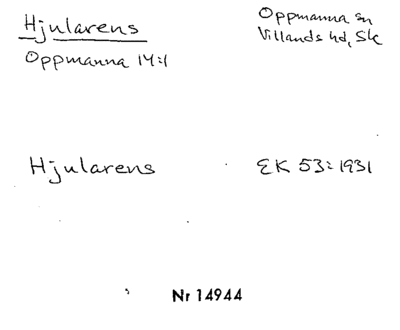 Hjularens
Oppmanna 14:1
Oppmanna sn
Villands hd, Sk
Hjularens
EK 53:1931
Nr 14944